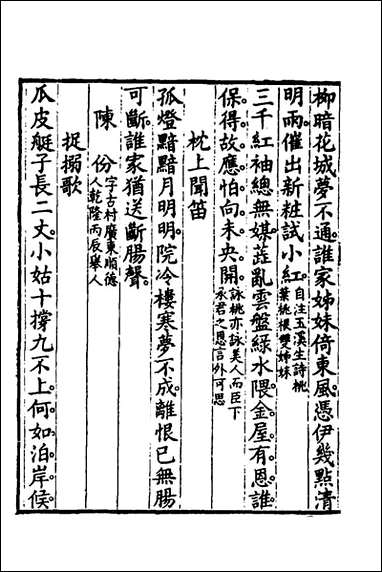 柳暗花城夢不通。誰家姊妹倚東風。憑伊幾點清
明雨。催出新粧試小紅。自注玉溪生詩桃葉桃根雙姊妹
三千紅袖總無媒。蕋亂雲盤綠水隈。金屋有恩誰
保得。故應怕向未央開。詠桃亦詠美人而臣下承君之恩言外可思
枕上聞笛
孤燈黯黯月明明。院冷樓寒夢不成。離恨已無腸
可斷。誰家猶送斷腸聲。
陳份字古村廣東順德人乾隆丙辰舉人
捉搦歌
瓜皮艇子長二丈。小姑十撐九不上。何如泊岸候。